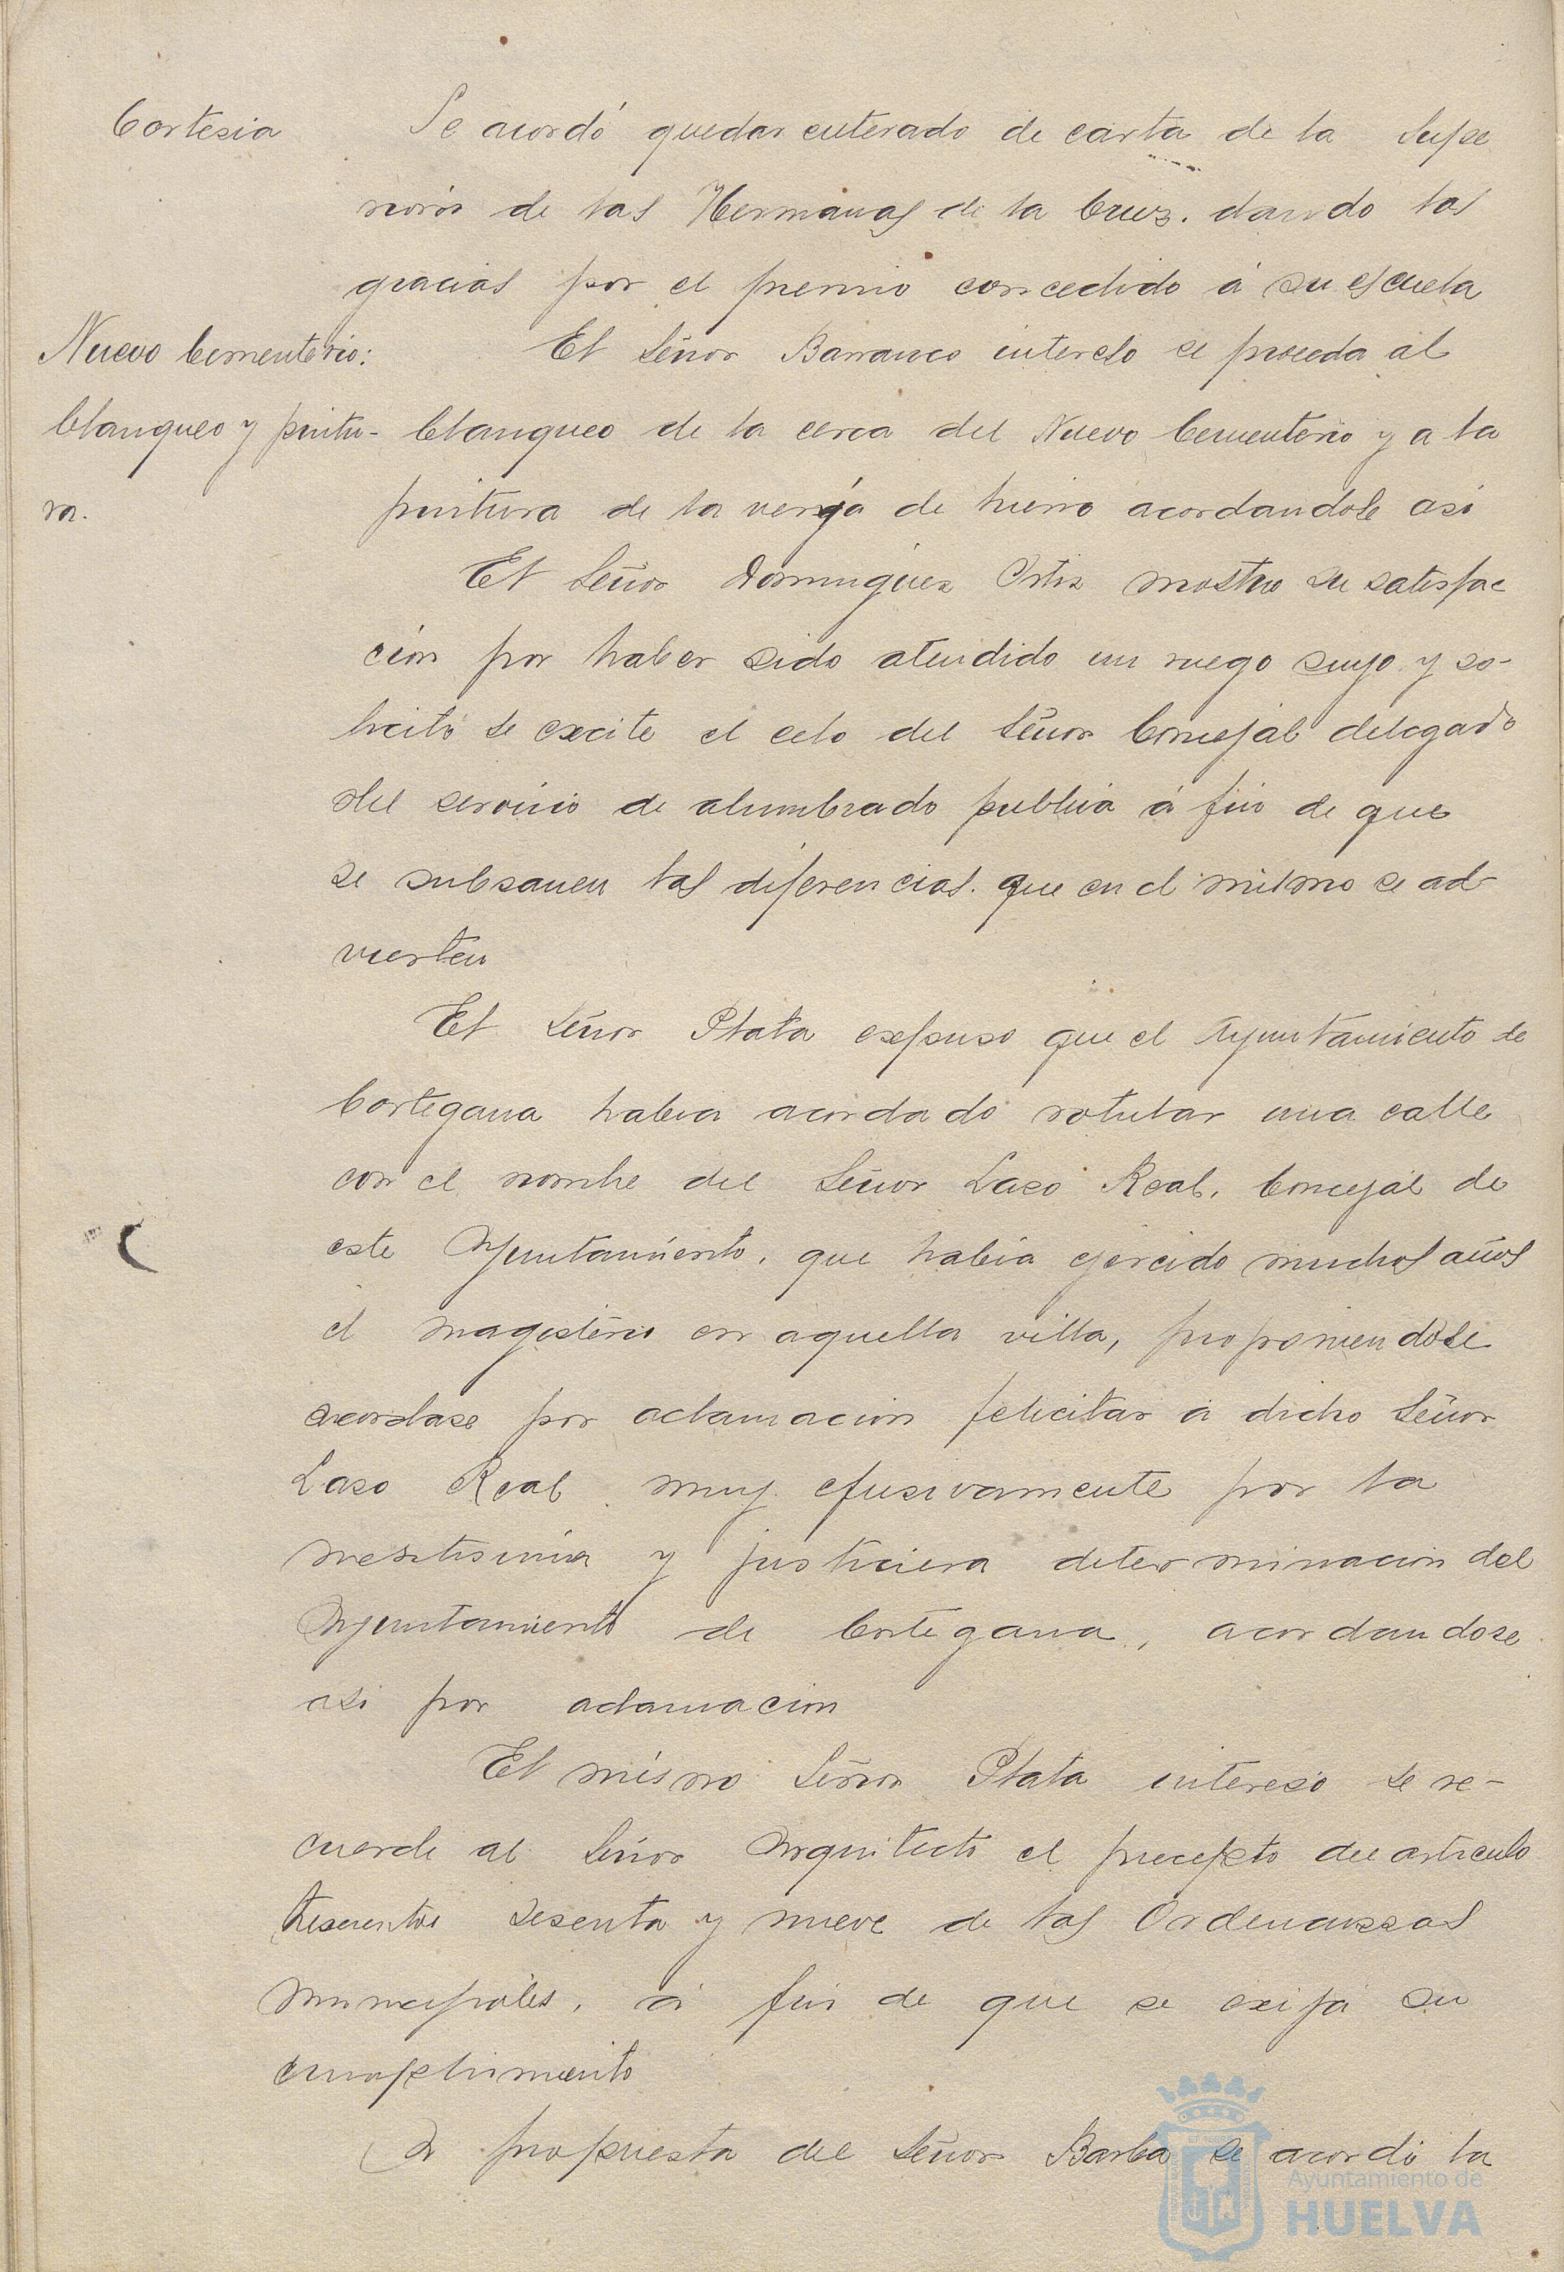 Cortesia
Se acordó quedar enterado de carta de la Supe
riora de las Hermanas de la Cruz. dando las
gracias por el premio concedido á su escuela
Nuevo Cementerio:
blanqueo y pintu-
ra.
El Señor Barranco intereso se proceda al
blanqueo de la cerca del Nuevo Cementerio y a la
pintura de la verja de hierro acordandole asi
El Señor Dominguez Ortiz mostro su satisfac
ción por haber sido atendido un ruego suyo y so-
licitó se excite el celo del Señor Concejal delegado
del servicio de alumbrado publica á fin de que
se subsanen las diferencias. que en el mismo se ad-
vierten
El Señor Plata expuso que el Ayuntamiento de
Cortegana habia acordado rotular una calle
con el nombre del Señor Laso Real, Concejal de
este Ayuntamiento, que habia ejercido muchos años
el magisterio en aquella villa, proponiendose
acordase por aclamacion felicitar á dicho Señor
Laso Real muy efusivamente por la
meritisima y justiciera determinacion del
Ayuntamiento de Cortegana, acordandose
asi por aclamacion
El mismo Señor Plata intereso se re-
cuerde al Señor Arquitecto el precepto del articulo
trescientos sesenta y nueve de las Ordenanzas
municipales, á fin de que se exija su
cumplimiento
A propuesta del Señor Barba se acordó la
Ayuntamiento de
HUELVA